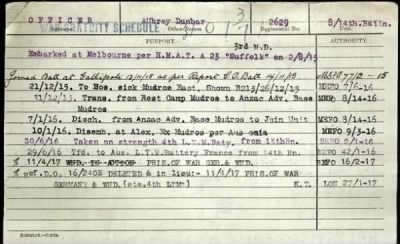 OFFICER Albrey Danbar 2629 8/14th.Battn.
GRATUITY SCHEDULE
PURPORT. AUTHORITY.
3rd M.D.
Embarked at Melbourne per H.M.A.T. A 23 "Suffolk" on 2/8/15
Joined Batt at Gallipoli as per Report C.O. Batt
21/12/15. To Hos. sick Mudros East, Shown B213/26/12/15 MEFO 6/7-16
31/12/15. Trans. from Rest Camp Mudros to Anzac Adv. Base
Mudros MEFO 8/14-16
7/1/16. Disch. from Anzac Adv. Base Mudros to Join Unit MEFO 3/14-16
10/1/16. Disemb. at Alex. Ex Mudros per MEFO 9/3-16
30/6/16 Taken on strength 4th L.T.M.Baty. from 14thBn.
29/6/16 Tfd. to Aus. L.T.M.Battery France from 14th Bn. BEFO 42/1-16
11/4/17 WND. IN ACTION PRIS.OF WAR GER.& WND. BEFO 16/2-17
ref.D.O. 16/240E DELETED & in lieu- 11/4/17 PRIS.OF WAR
GERMANY & WND. K.T. LON 27/1-17